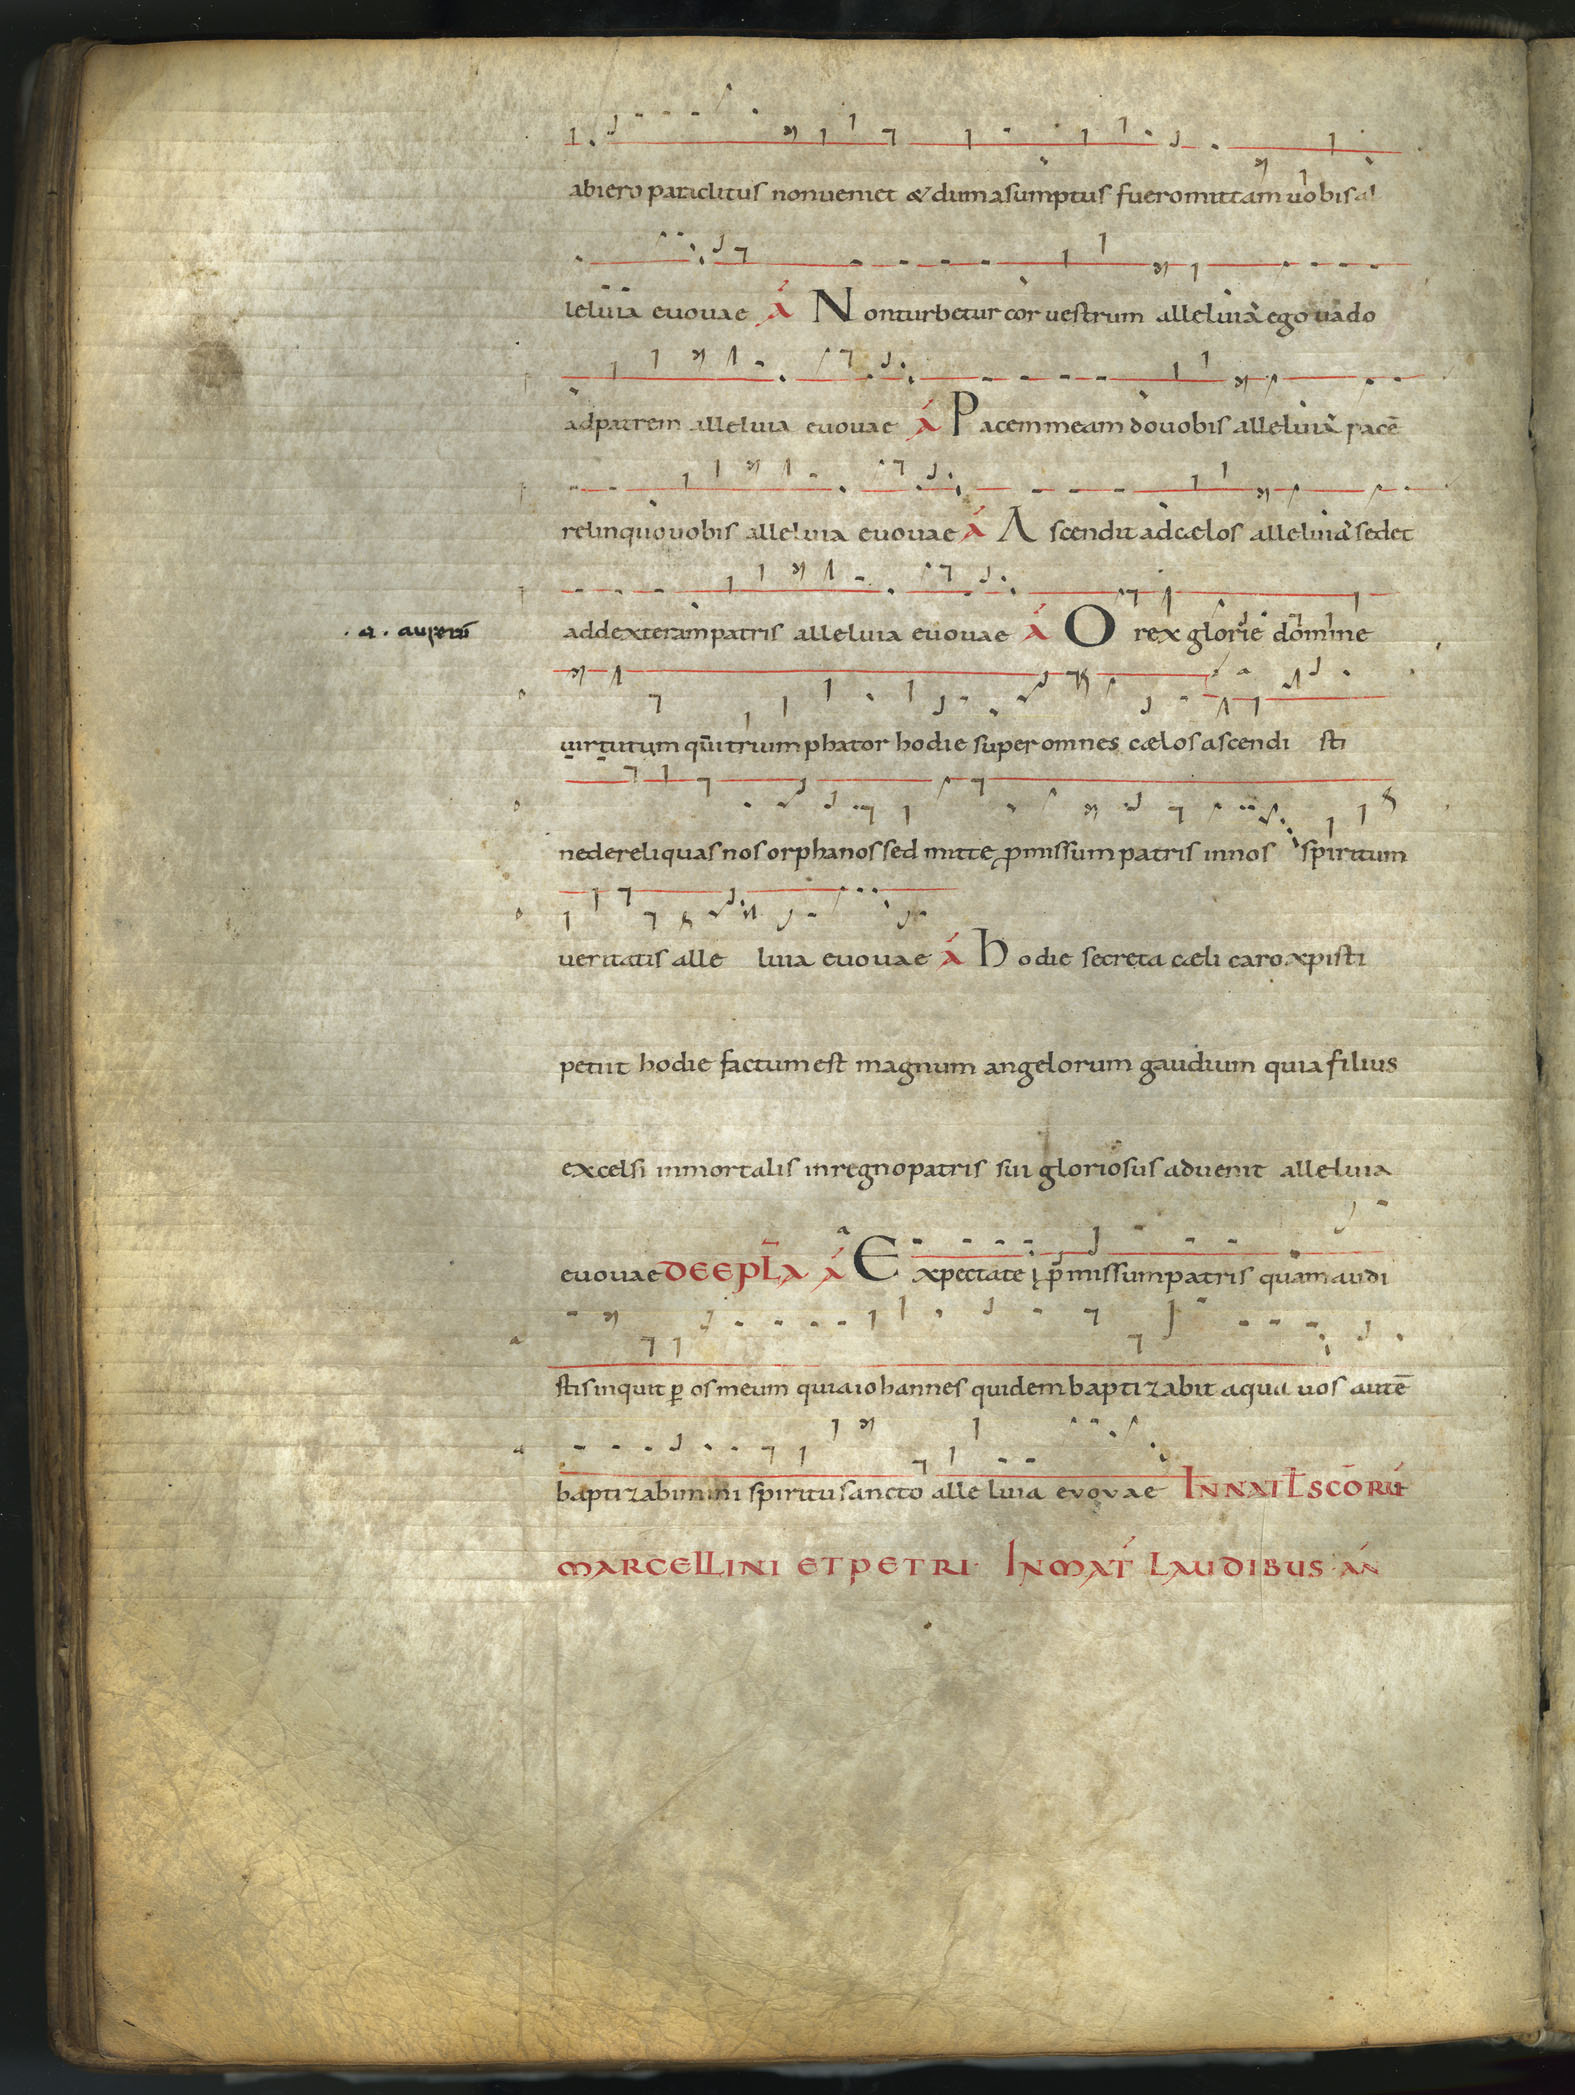 abiero paraclitus non veniet & dum asumptus fuero mittam vobis al
leluia evovae á Non turbetur cor vestrum alleluia ego vado
ad patrem alleluia evovae á Pacem meam do vobis alleluia pacē
relinquo vobis alleluia evovae á Ascendit ad cælos alleluia sedet
ad dexteram patris alleluia evovae á O rex glorie domine
.a. aurerū
virtutum qui triumphator hodie super omnes cælos ascendi sti
ne derelinquas nos orphanos sed mitte promissum patris in nos spiritum
veritatis alle luia evovae á Hodie secreta cæli caro xpisti
petiit hodie factum est magnum angelorum gaudium quia filius
excelsi inmortalis in regno patris sui gloriosus advenit alleluia
evovae DE EPLA á a Expectate p̄missum patris quam audi
stis inquit ꝑ os meum quia iohannes quidem baptizabit aqua vos autē
baptizabimini spiritu sancto alle luia evovae IN NATL SCŌRŪ
MARCELLINI ET PETRI. IN MAT LAUDIBUS ÁN